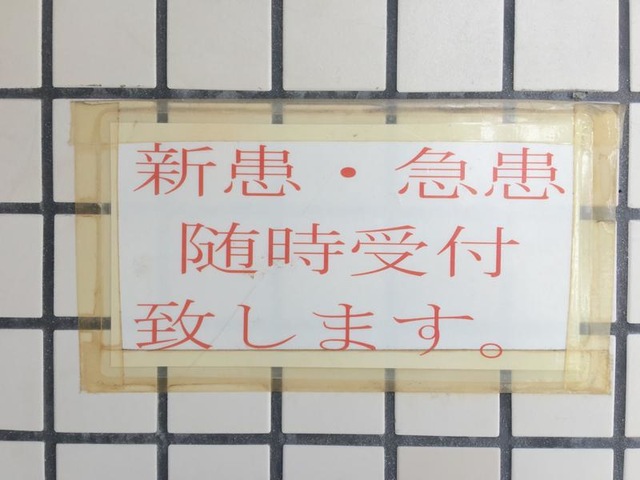 新患・急患
随時受付
致します。